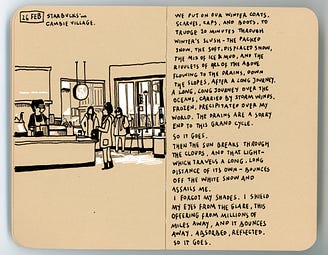 26 FEB
STARBUCKS
CAMBIE VILLAGE.
WE PUT ON OUR WINTER COATS,
SCARVES, CAPS, AND BOOTS, TO
TRUDGE 20 MINUTES THROUGH
WINTER'S SLUSH - THE PACKED
SNOW, THE SOFT, DISPLACED SNOW,
THE MIX OF ICE & MUD, AND THE
RIVULETS OF ALL OF THE ABOVE
FLOWING TO THE DRAINS, DOWN
THE SLOPES, AFTER A LONG JOURNEY,
A LONG, LONG JOURNEY OVER THE
OCEANS, CARRIED BY STORM WINDS,
FROZEN, PRECIPITATED OVER MY
WORLD. THE DRAINS ARE A SORRY
END TO THIS GRAND CYCLE.
SO IT GOES.
THEN THE SUN BREAKS THROUGH
THE CLOUDS, AND THAT LIGHT -
WHICH TRAVELS A LONG, LONG
DISTANCE OF ITS OWN - BOUNCES
OFF THE WHITE SNOW AND
ASSAILS ME.
I FORGOT MY SHADES. I SHIELD
MY EYES FROM THE GLARE, THIS
OFFERING FROM MILLIONS OF
MILES AWAY, AND IT BOUNCES
AWAY, ABSORBED, REFLECTED.
SO IT GOES.